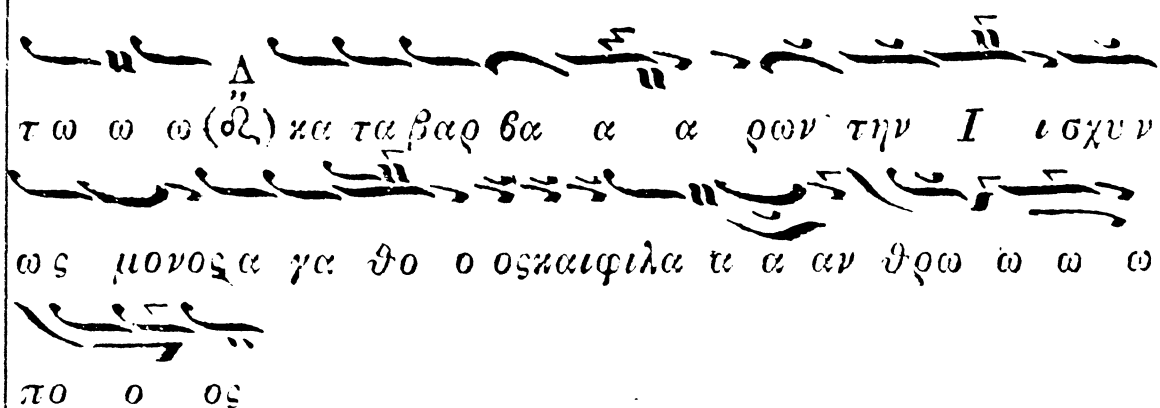 Δ
τω ω ω (δι) κα τα βαρ βα α α ρων την Ι ι σχυν
ως μονος α γα θο ο ος και φιλα α α αν θρω ω ω ω
πο ο ος